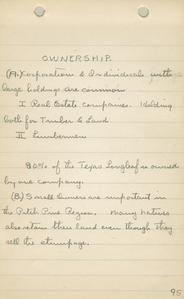 OWNERSHIP.
(A.) Corporations & Individuals with
large holdings are common
I Real Estate companies. Holding
both for Timber & Land
II Lumbermen
80% of the Texas Longleaf is owned
by one company.
(B.) Small owners are important in
the Pitch Pine Region. Many natives
also retain their land even though they
sell the stumpage.
95